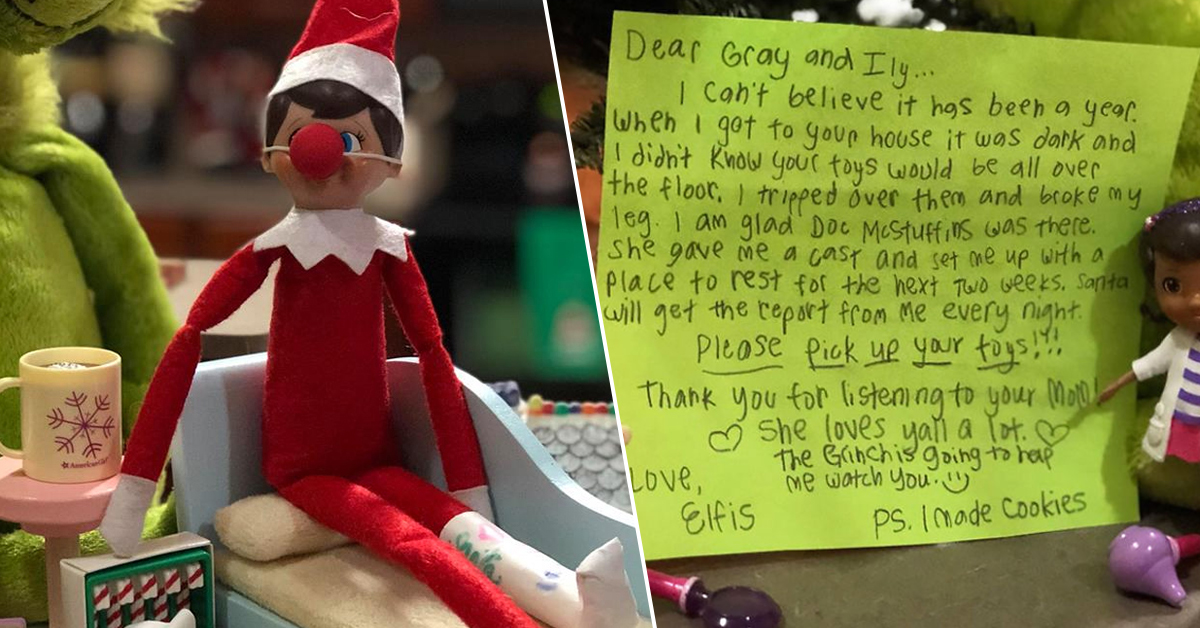 Dear Gray and Ily...
I can't believe it has been a year.
When I got to your house it was dark and
I didn't know your toys would be all over
the floor. I tripped over them and broke my
leg. I am glad Doc McStuffins was there.
She gave me a cast and set me up with a
place to rest for the next two weeks. Santa
will get the report from me every night.
Please pick up your toys!!!
Thank you for listening to your Mom!
She loves yall a lot.
the Grinch is going to help
me watch you.
Love,
Elfis
PS. I made cookies
American Girl